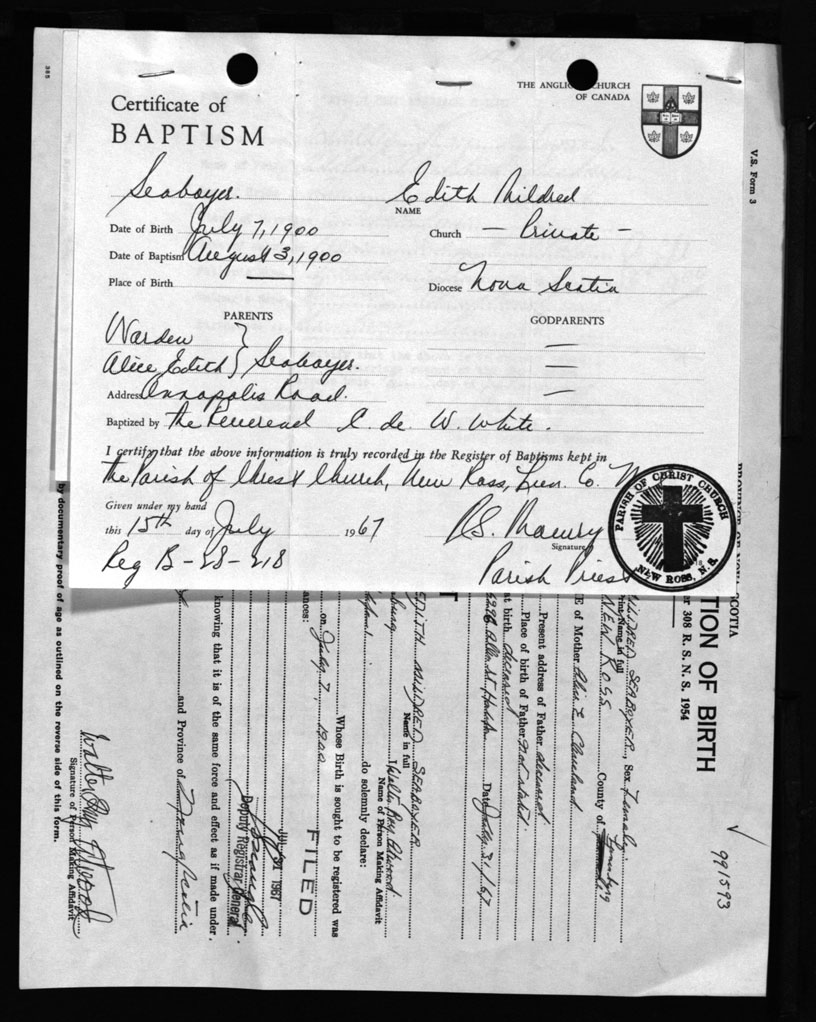 THE ANGLICAN CHURCH
OF CANADA
Certificate of
BAPTISM
Seaboyer. Edith Mildred
NAME
Date of Birth July 7, 1900 Church — Private —
Date of Baptism August 3, 1900
Place of Birth — Diocese Nova Scotia
PARENTS GODPARENTS
Warden —
Alice Edith } Seaboyer. —
Address Annapolis Road. —
Baptized by The Reverend C. de. W. White.
I certify that the above information is truly recorded in the Register of Baptisms kept in
the Parish of Christ Church, New Ross, Lun. Co.
Given under my hand
this 15th day of July 1967
Signature
Parish Priest
Reg B-28-218
PARISH OF CHRIST CHURCH
NEW ROSS, N.S.
385
V.S. Form 3
SCOTIA
TION OF BIRTH
308 R. S. N. S. 1954
991593
MILDRED SEABOYER, Sex Female
Print Name in full
NEW ROSS County of
of Mother Alice E.
Present address of Father deceased
Place of birth of Father not stated.
at birth deceased
Date July 31/67
EDITH MILDRED SEABOYER
Name in full
I Walter Roy
Name of Person Making Affidavit
do solemnly declare:
Whose Birth is sought to be registered was
on July 7, 1900
FILED
JUL 31 1967
Deputy Registrar General
knowing that it is of the same force and effect as if made under
and Province of Nova Scotia
Walter Roy
Signature of Person Making Affidavit
by documentary proof of age as outlined on the reverse side of this form.